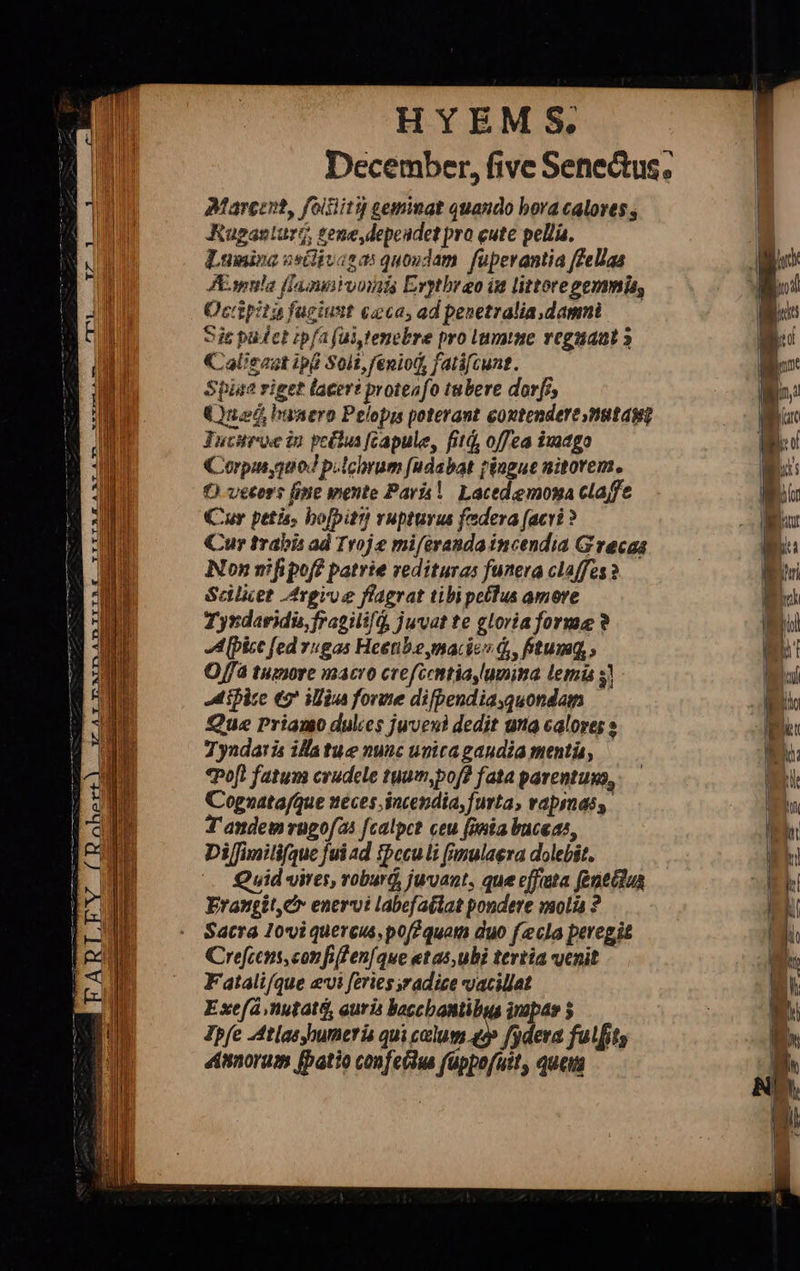 HYEMS.
December, sive Senectus.
Marcent, solstitij geminat quando hora calores,
Ruganturq́, genæ, dependet pro cute pellis.
Lumina æstivagas quondam superantia stellas
Æmula flammivomis Erythræo in littore gemmis,
Occipitis fugiunt cæca, ad penetralia, damni
Sic pudet ipsa sui, tenebræ pro lumine regnant;
Caligant ipsi Soli, senioq́, fatiscunt.
Spina riget laceri protenso tubere dorsi,
Quæq́, humero Pelopis poterant contendere, nutant
Incurvæ in pectus scapulæ, sitq́, ossea imago
Corpus, quod pulchrum sudabat pingue nitorem.
O vecors sine mente Paris! Lacedæmona classe
Cur petis, hospitij rupturus fœdera sacri?
Cur trabis ad Trojæ miseranda incendia Græcas
Non nisi post patriæ redituras funera classes?
Scilicet Argivæ flagrat tibi pectus amore
Tyndaridis, fragilisq́, juvat te gloria formæ?
Aspice sed rugas Hecubæ, macienq́, situmq́,
Ossa tumore macro crescentia, lumina lemis;
Aspice & illius formæ dispendia, quondam
Quæ Priamo dulces juveni dedit una calores:
Tyndaris illa tuæ nunc unica gaudia mentis,
Post fatum crudele tuum, post fata parentum,
Cognatasque neces, incendia, furta, rapinas,
Tandem rugosas scalpet ceu simia buccas,
Dissimilisque sui ad speculi simulacra dolebit.
Quid vires, roburq́, juvant, quæ effœta senectus
Frangit, & enervi labefactat pondere molis?
Sacra Iovi quercus, postquam duo sæcla peregit
Crescens, consistensque ætas, ubi tertia venit
Fatalisque ævi series, radice vacillat
Exesâ, nutatq́, auris bacchantibus impar;
Ipse Atlas, humeris qui cælum & sydera fulsit,
Annorum spatio confectus supposuit, quem
FARLEY (Robert) KALENDARIUM